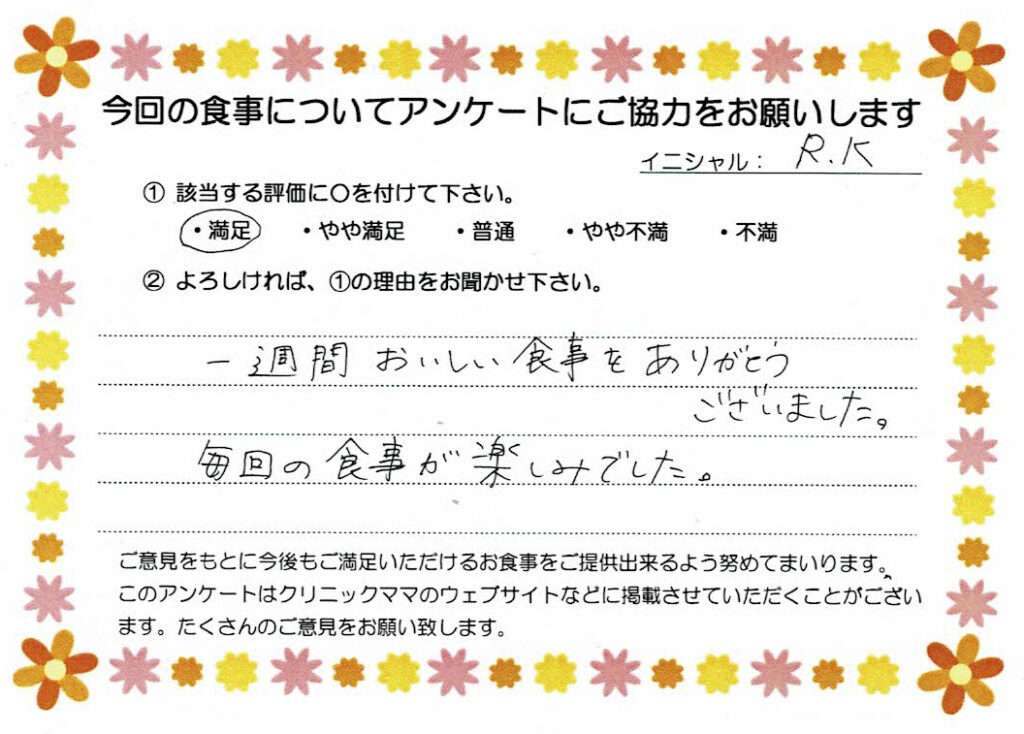 今回の食事についてアンケートにご協力をお願いします
イニシャル： R.K
① 該当する評価に〇を付けて下さい。
・満足 ・やや満足 ・普通 ・やや不満 ・不満
② よろしければ、①の理由をお聞かせ下さい。
一週間 おいしい食事を ありがとう
ございました。
毎回の食事が楽しみでした。
ご意見をもとに今後もご満足いただけるお食事をご提供出来るよう努めてまいります。
このアンケートはクリニックママのウェブサイトなどに掲載させていただくことがござい
ます。たくさんのご意見をお願い致します。